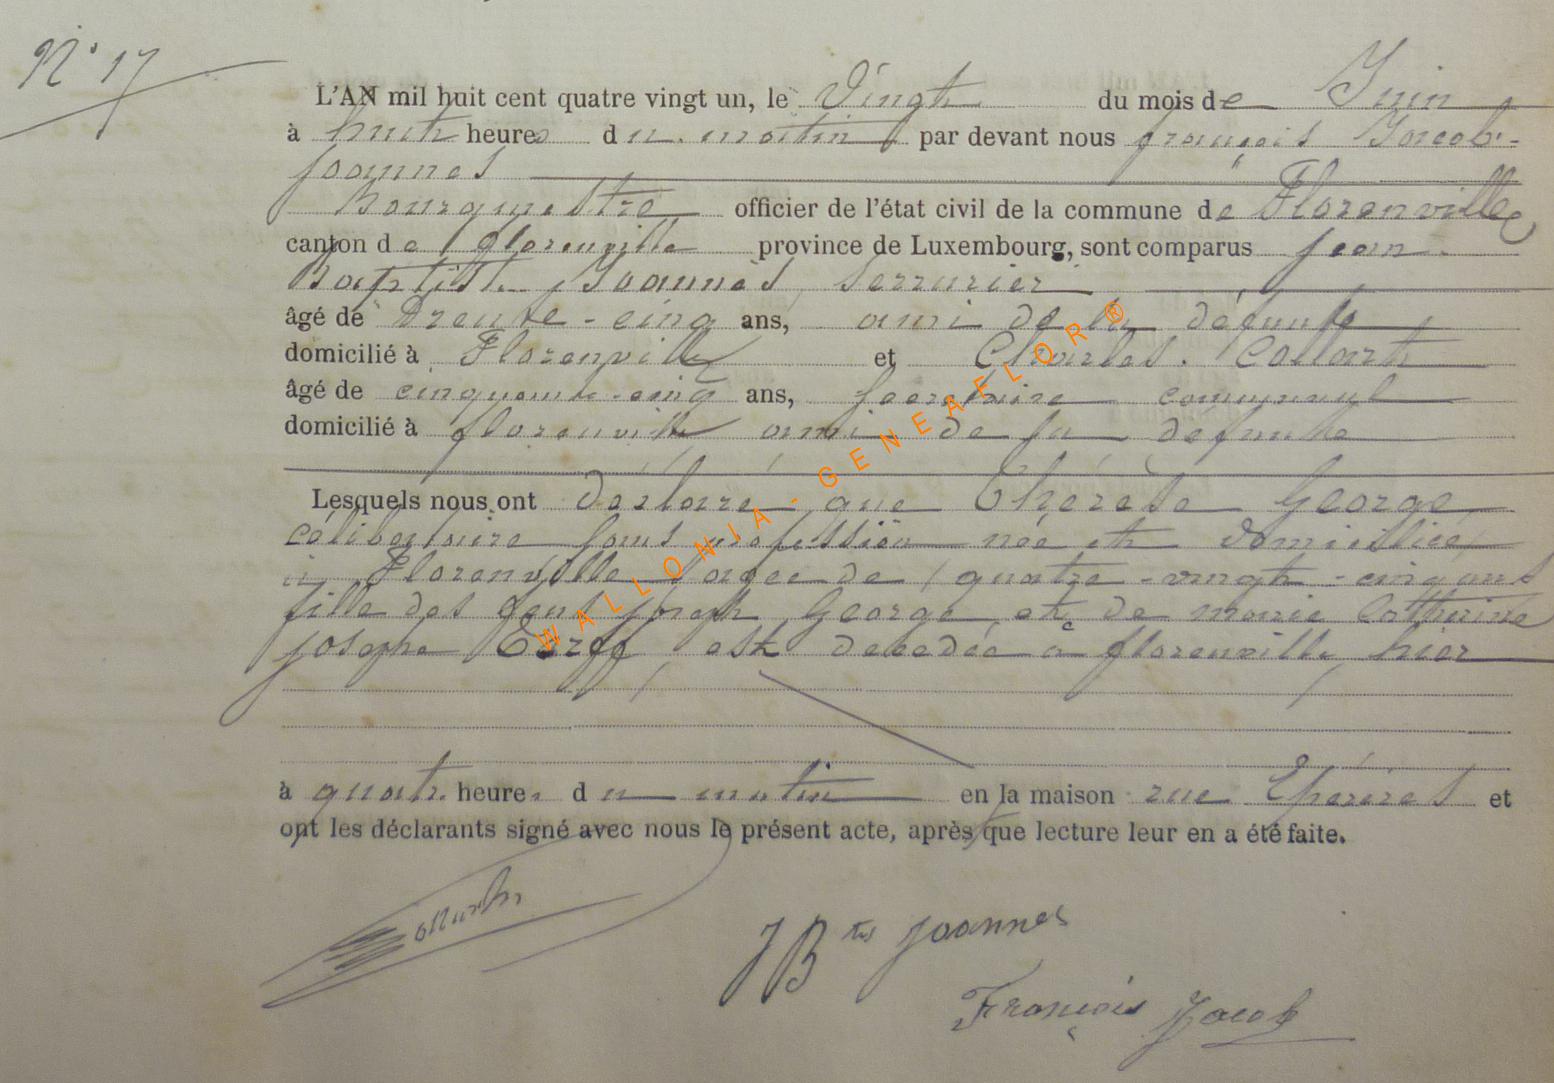 N° 17
L'AN mil huit cent quatre vingt un, le Vingt du mois de Juin
à huit heures du matin par devant nous françois Jacob-
joannes
Bourgmestre officier de l'état civil de la commune de Florenville
canton de florenville province de Luxembourg, sont comparus jean
Baptiste Joannes serrurier
âgé de Trente-cinq ans, ami de la défunte
domicilié à Florenville et Charles Collart
âgé de cinquante-cinq ans, secretaire communal
domicilié à florenville ami de la defunte
Lesquels nous ont déclaré que Thérèse George
célibataire sans profession née et domiciliée
à Florenville agée de quatre-vingt-cinq ans
fille des feus joseph George et de marie Catherine
josephe est decedée à florenville hier
à quatre heures du matin en la maison rue et
ont les déclarants signé avec nous le présent acte, après que lecture leur en a été faite.
Collart
JBtes joannes
François Jacob
WALLONIA-GENEAFLOR®